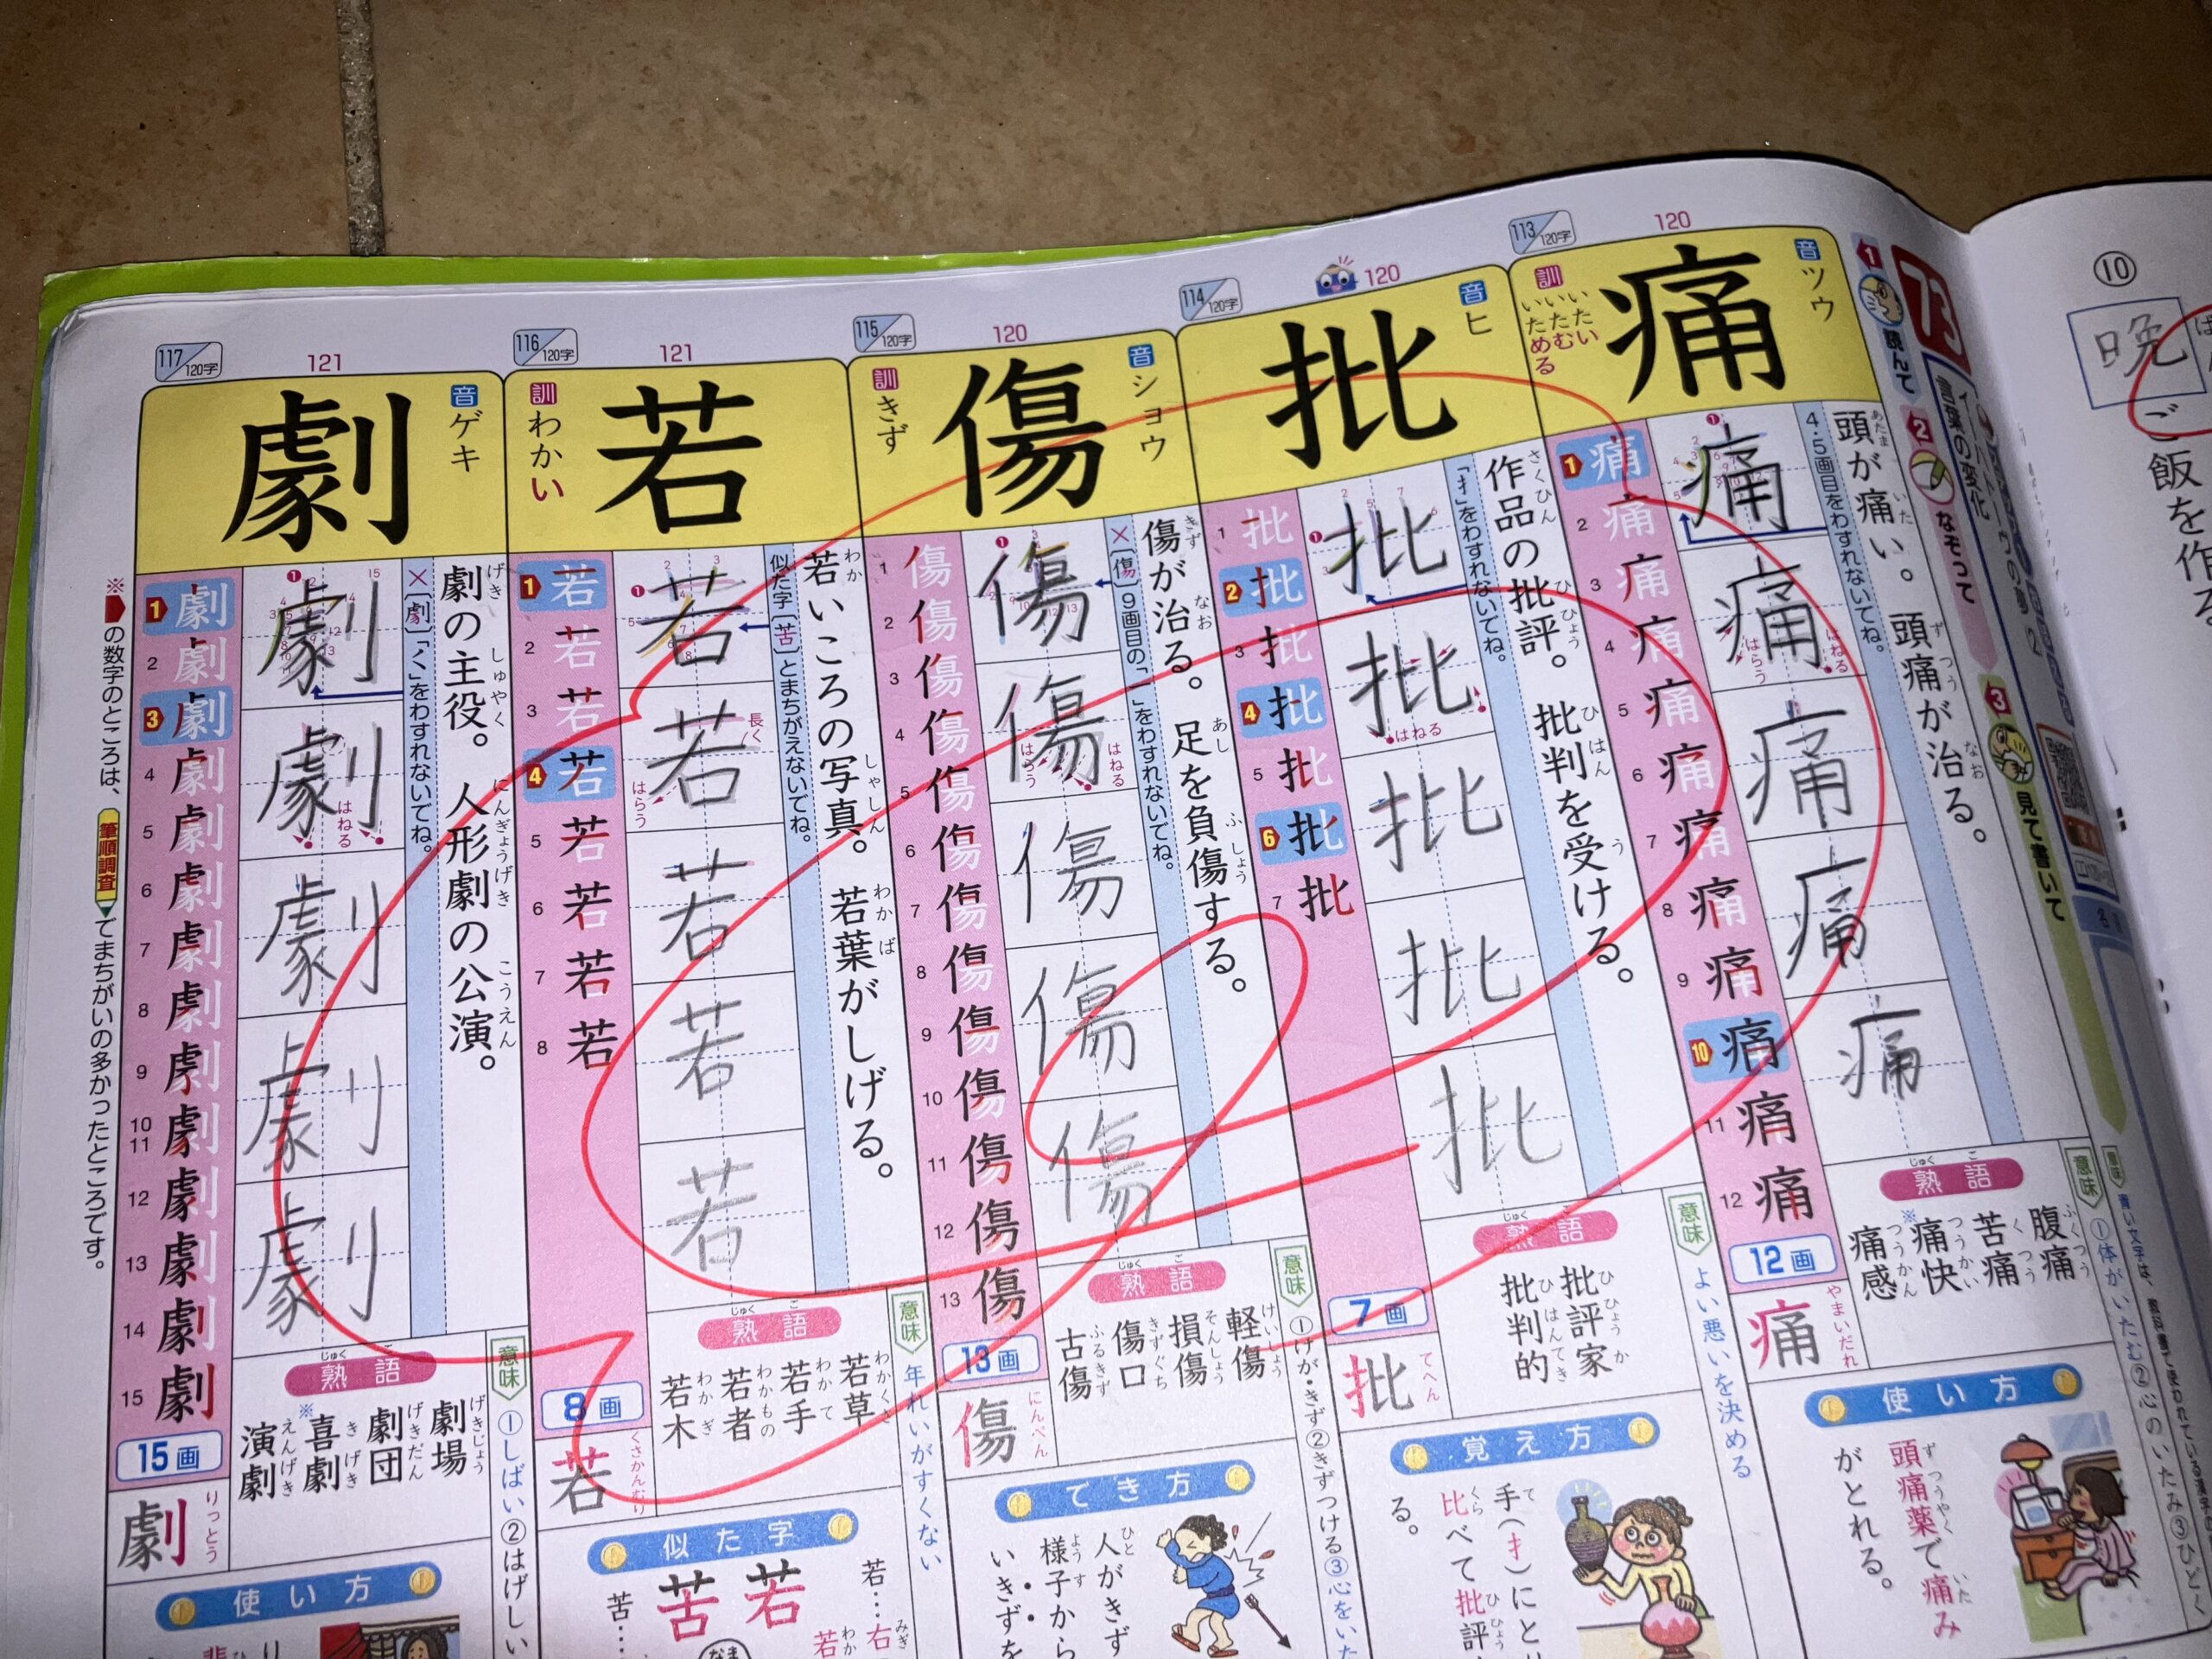 ⑩
晩
ご飯を作る
73
言葉の変化
1 読んで
2 なぞって
3 見て書いて
113/120字
120
痛
音 ツウ
訓 いたい
いたむ
いためる
頭が痛い。頭痛が治る。
4・5画目をわすれないでね。
はねる
はらう
痛
痛
痛
痛
痛
1 痛
2 痛
3 痛
4 痛
5 痛
6 痛
7 痛
8 痛
9 痛
10 痛
11 痛
12 痛
12画
痛 やまいだれ
意味 ①体がいたむ②心のいたみ③ひどく
熟語
腹痛
苦痛
※痛快
痛感
使い方
頭痛薬で痛み
がとれる。
114/120字
120
批
音 ヒ
作品の批評。批判を受ける。
「扌」をわすれないでね。
はねる
批
批
批
批
批
1 批
2 批
3 批
4 批
5 批
6 批
7 批
7画
批 てへん
意味 よい悪いを決める
熟語
批評家
批判的
覚え方
手(扌)にと
比べて批評
る。
115/120字
120
傷
音 ショウ
訓 きず
傷が治る。足を負傷する。
×〔傷〕9画目の「一」をわすれないでね。
はねる
はらう
傷
傷
傷
傷
傷
1 傷
2 傷
3 傷
4 傷
5 傷
6 傷
7 傷
8 傷
9 傷
10 傷
11 傷
12 傷
13 傷
13画
傷 にんべん
意味 ①けが・きず②きずつける③心をいた
熟語
軽傷
損傷
傷口
古傷
でき方
人がきず
様子から
いきずを
116/120字
121
若
訓 わかい
若いころの写真。若葉がしげる。
似た字〔苦〕とまちがえないでね。
長く
はらう
若
若
若
若
若
1 若
2 若
3 若
4 若
5 若
6 若
7 若
8 若
8画
若 くさかんむり
意味 年れいがすくない
熟語
若草
若手
若者
若木
似た字
若…右
若
苦
苦…
117/120字
121
劇
音 ゲキ
劇の主役。人形劇の公演。
×〔劇〕「く」をわすれないでね。
はねる
劇
劇
劇
劇
劇
1 劇
2 劇
3 劇
4 劇
5 劇
6 劇
7 劇
8 劇
9 劇
10 11 劇
12 劇
13 劇
14 劇
15 劇
15画
劇 りっとう
意味 ①しばい②はげしい
熟語
劇場
劇団
※喜劇
演劇
使い方
※の数字のところは、筆順調査でまちがいの多かったところです。